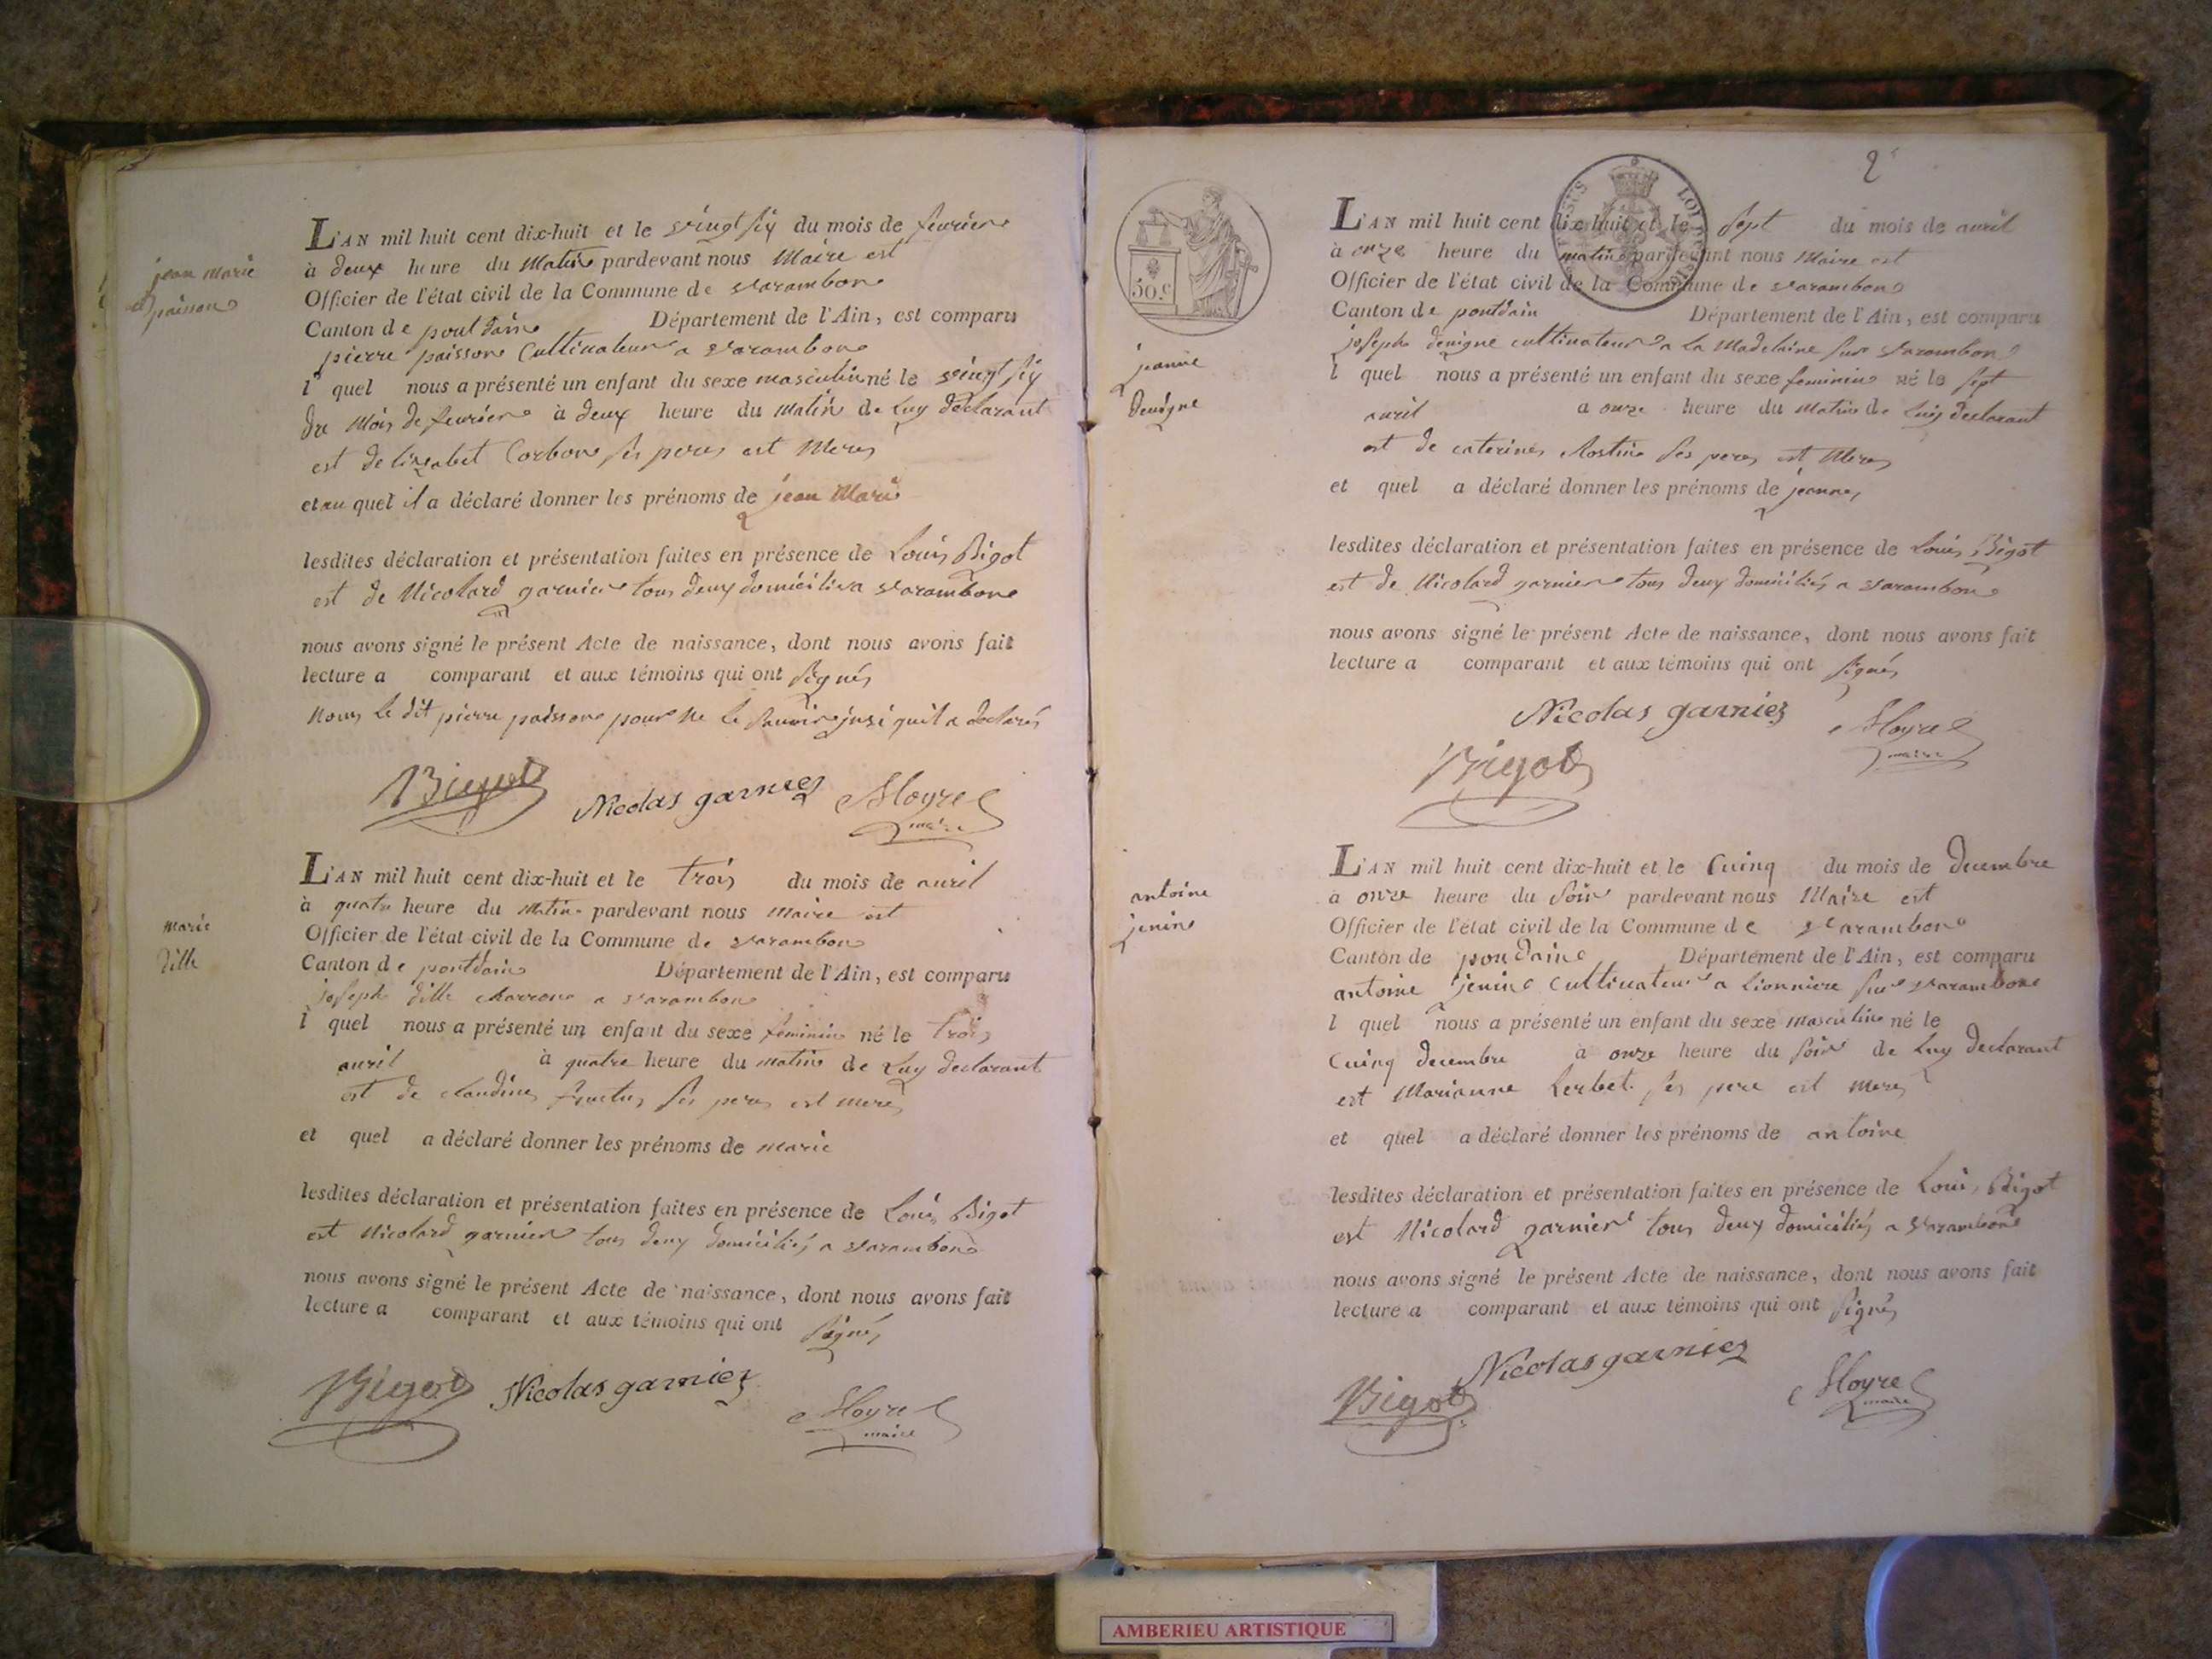 jean marie
paisson
L'AN mil huit cent dix-huit et le vingt six du mois de fevrier
à deux heure du matin pardevant nous Maire est
Officier de l'état civil de la Commune de varambon
Canton de pont dain Département de l'Ain, est comparu
pierre paisson Cultivateur a varambon
l quel nous a présenté un enfant du sexe masculin né le vingt six
du Mois de fevrier à deux heure du matin de luy declarant
est de lizabet Corbon ses peres est Meres
et au quel il a déclaré donner les prénoms de jean Marie
lesdites déclaration et présentation faites en présence de Louis Bigot
est de Nicolard garnier tous deux domiciliés a varambon
nous avons signé le présent Acte de naissance, dont nous avons fait
lecture a comparant et aux témoins qui ont signés
Nous le dit pierre paisson pour ne le savoir insi quil a declarés
Bigot Nicolas garnier
maire
marie
dille
L'AN mil huit cent dix-huit et le trois du mois de avril
à quatre heure du matin pardevant nous maire est
Officier de l'état civil de la Commune de varambon
Canton de pontdain Département de l'Ain, est comparu
joseph dille charron a varambon
l quel nous a présenté un enfant du sexe feminin né le trois
avril à quatre heure du matin de luy declarant
est de claudine ses peres est meres
et quel a déclaré donner les prénoms de marie
lesdites déclaration et présentation faites en présence de Louis Bigot
est Nicolard garnier tous deux domiciliés a varambon
nous avons signé le présent Acte de naissance, dont nous avons fait
lecture a comparant et aux témoins qui ont signés
Bigot Nicolas garnier
maire
2
50.c
jeanne
devigne
L'AN mil huit cent dix-huit et le sept du mois de avril
à onze heure du matin pardevant nous Maire est
Officier de l'état civil de la Commune de varambon
Canton de pontdain Département de l'Ain, est comparu
joseph devigne cultivateur a la Madelaine sur varambon
l quel nous a présenté un enfant du sexe feminin né le sept
avril à onze heure du matin de luy declarant
est de caterine ses peres est Meres
et quel a déclaré donner les prénoms de jeanne
lesdites déclaration et présentation faites en présence de Louis Bigot
est de Nicolard garnier tous deux domiciliés a varambon
nous avons signé le présent Acte de naissance, dont nous avons fait
lecture a comparant et aux témoins qui ont signés
Nicolas garnier
maire
Bigot
antoine
jenin
L'AN mil huit cent dix-huit et le Cuinq du mois de decembre
à onze heure du soir pardevant nous Maire est
Officier de l'état civil de la Commune de varambon
Canton de pondain Département de l'Ain, est comparu
antoine jenin cultivateur a lionniere sur varambon
l quel nous a présenté un enfant du sexe masculin né le
Cuinq decembre à onze heure du soir de luy declarant
est Marianne Lerbet ses pere est mere
et quel a déclaré donner les prénoms de antoine
lesdites déclaration et présentation faites en présence de Louis Bigot
est Nicolard garnier tous deux domiciliés a varambon
nous avons signé le présent Acte de naissance, dont nous avons fait
lecture a comparant et aux témoins qui ont signés
Nicolas garnier
Bigot
maire
AMBERIEU ARTISTIQUE